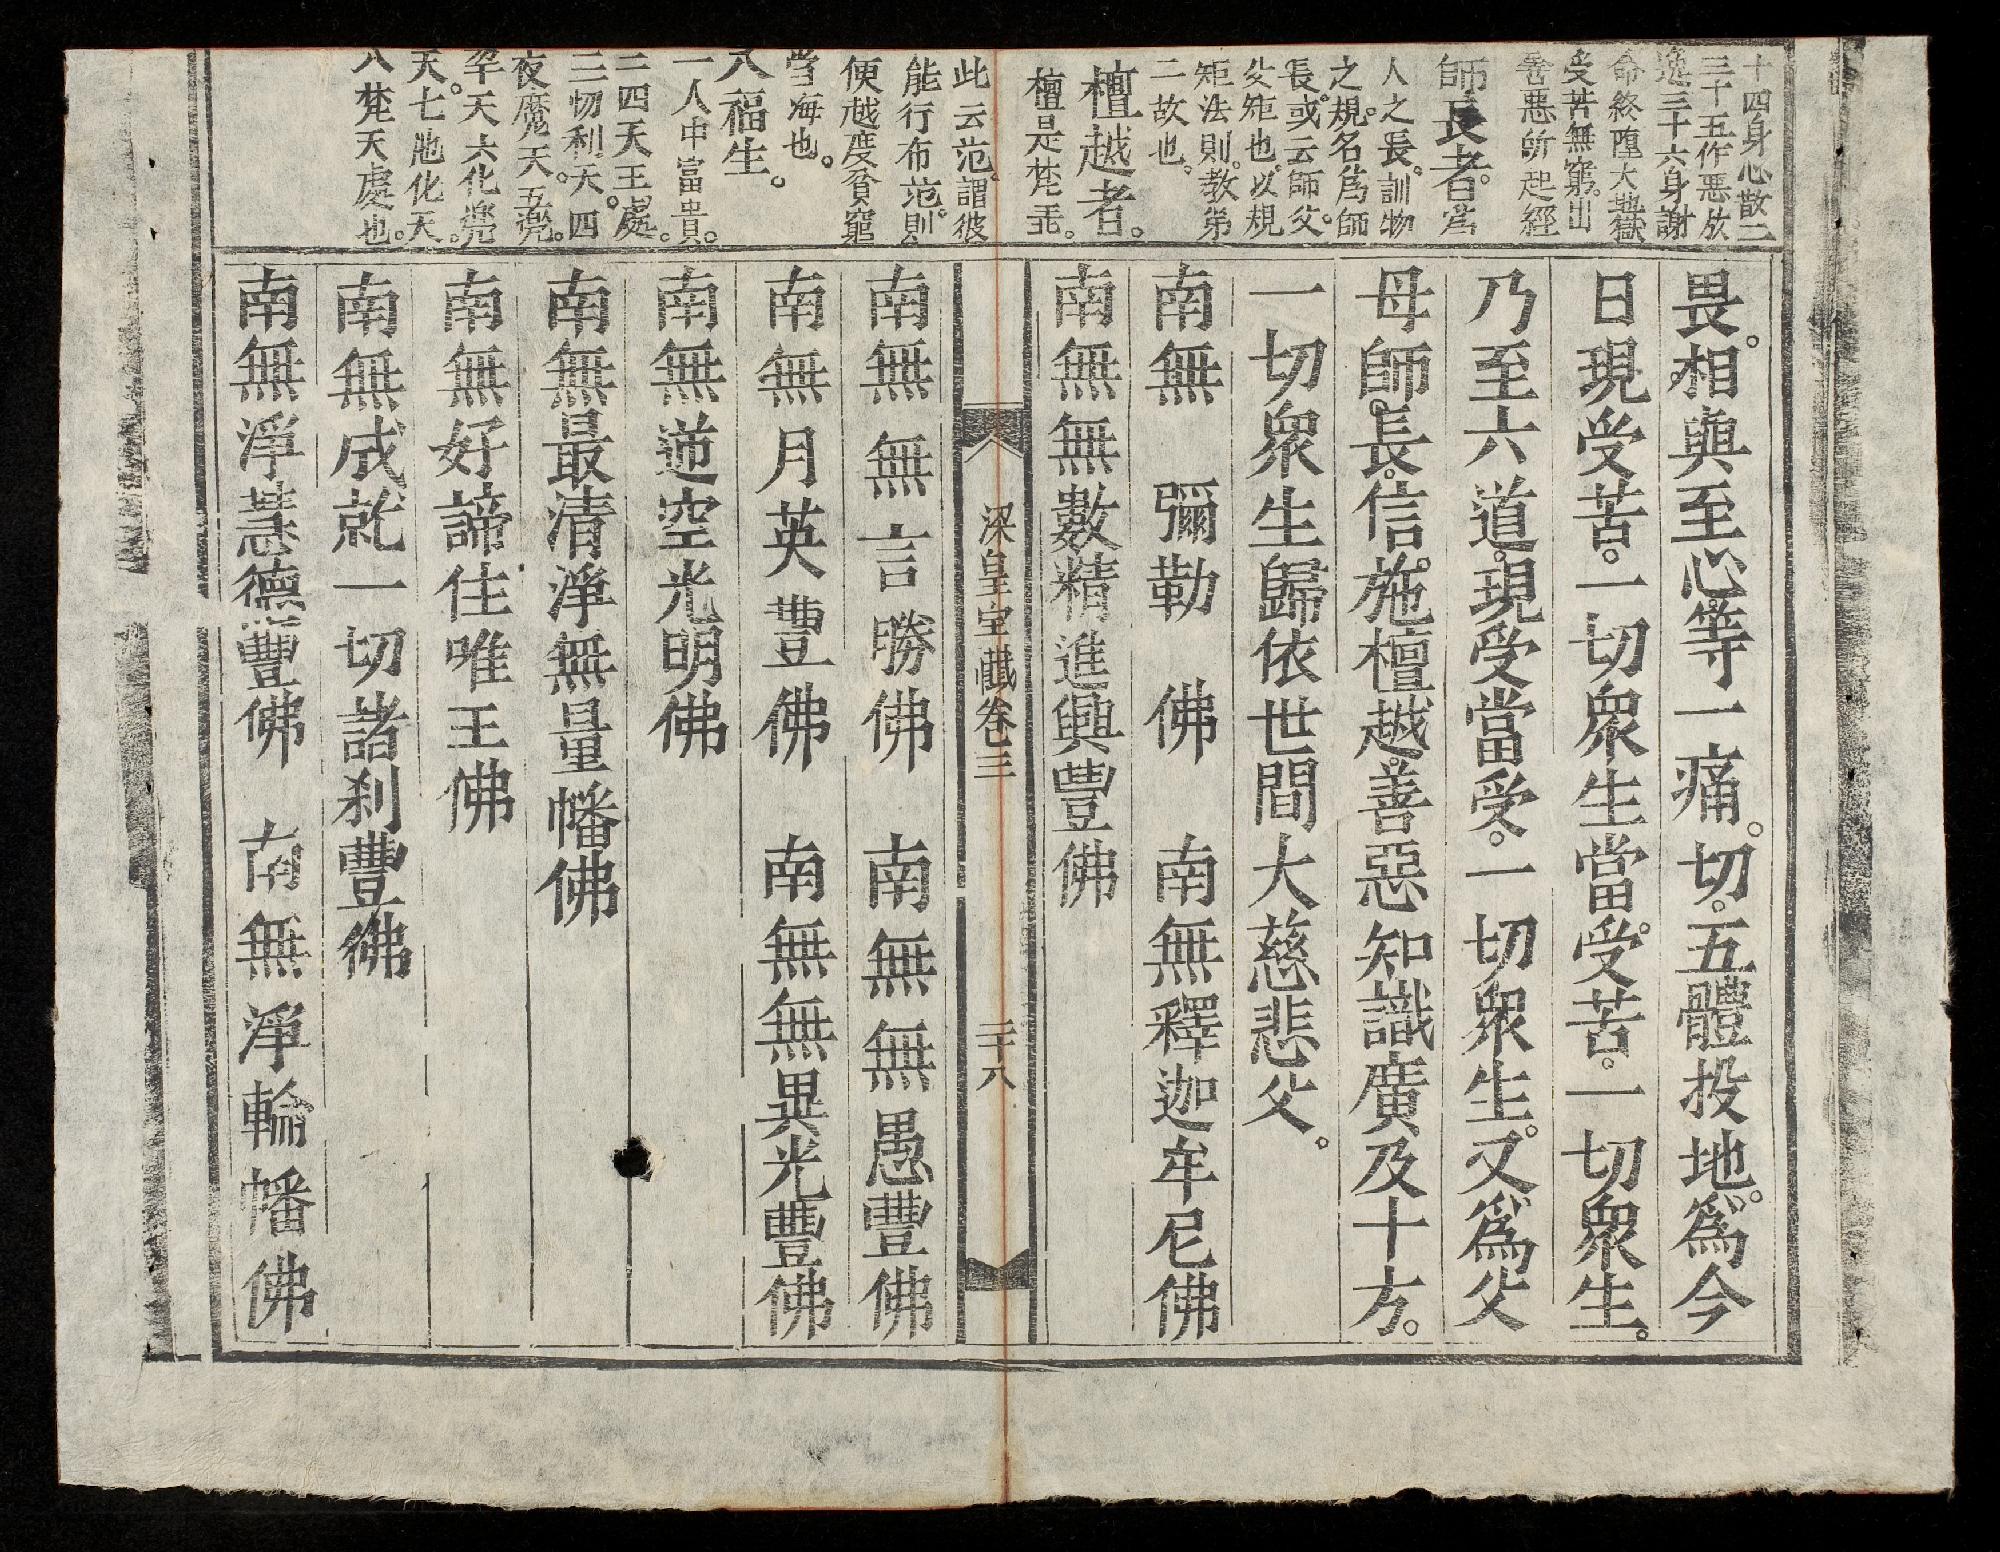 十四身心散二
三十五作惡放
逸三十六身謝
命終墮大地獄
受苦無窮。出
善惡所起經
師長者。為
人之長。訓物
之規。名為師
長。或云師父。
父矩也。以規
矩法則。教弟
二故也。
檀越者。
檀是梵語。
此云范。謂彼
能行布范。則
便越度貧窮
苦海也。
八福生。
一人中富貴。
二四天王處。
三忉利天。四
夜魔天。五兜
率天六化樂
天。七他化天。
八梵天處也。
畏。相與至心等一痛。切。五體投地。為今
日現受苦。一切眾生當受苦。一切眾生。
乃至六道。現受當受。一切眾生。又為父
母師。長。信施檀越。善惡知識廣及十方。
一切眾生歸依世間大慈悲父。
南無 彌勒 佛 南無釋迦牟尼佛
南無無數精進興豐佛
梁皇宝懺卷三 二十八
南無無言勝佛 南無無愚豐佛
南無月英豐佛 南無無異光豐佛
南無逆空光明佛
南無最清淨無量幡佛
南無好諦住唯王佛
南無成就一切諸剎豐佛
南無淨慧德豐佛 南無淨輪幡佛